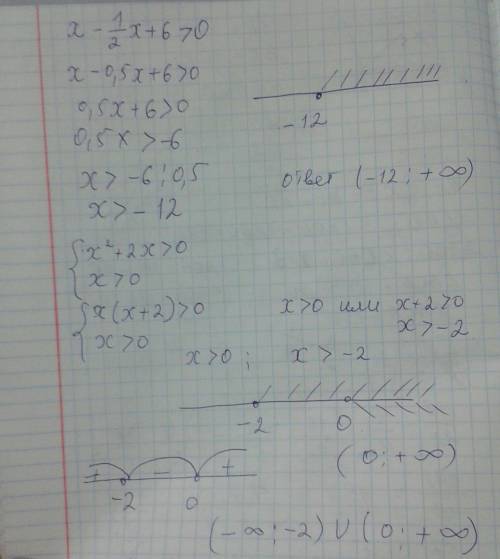 x - 1/2 x + 6 > 0
x - 0,5x + 6 > 0
0,5x + 6 > 0
0,5x > -6
x > -6 : 0,5
x > -12
-12
ответ (-12; +∞)
{ x² + 2x > 0
x > 0
{ x(x+2) > 0
x > 0
x > 0 или x+2 > 0
x > -2
x > 0 ; x > -2
-2 0
(0; +∞)
+ - +
-2 0
(-∞; -2) ∪ (0; +∞)